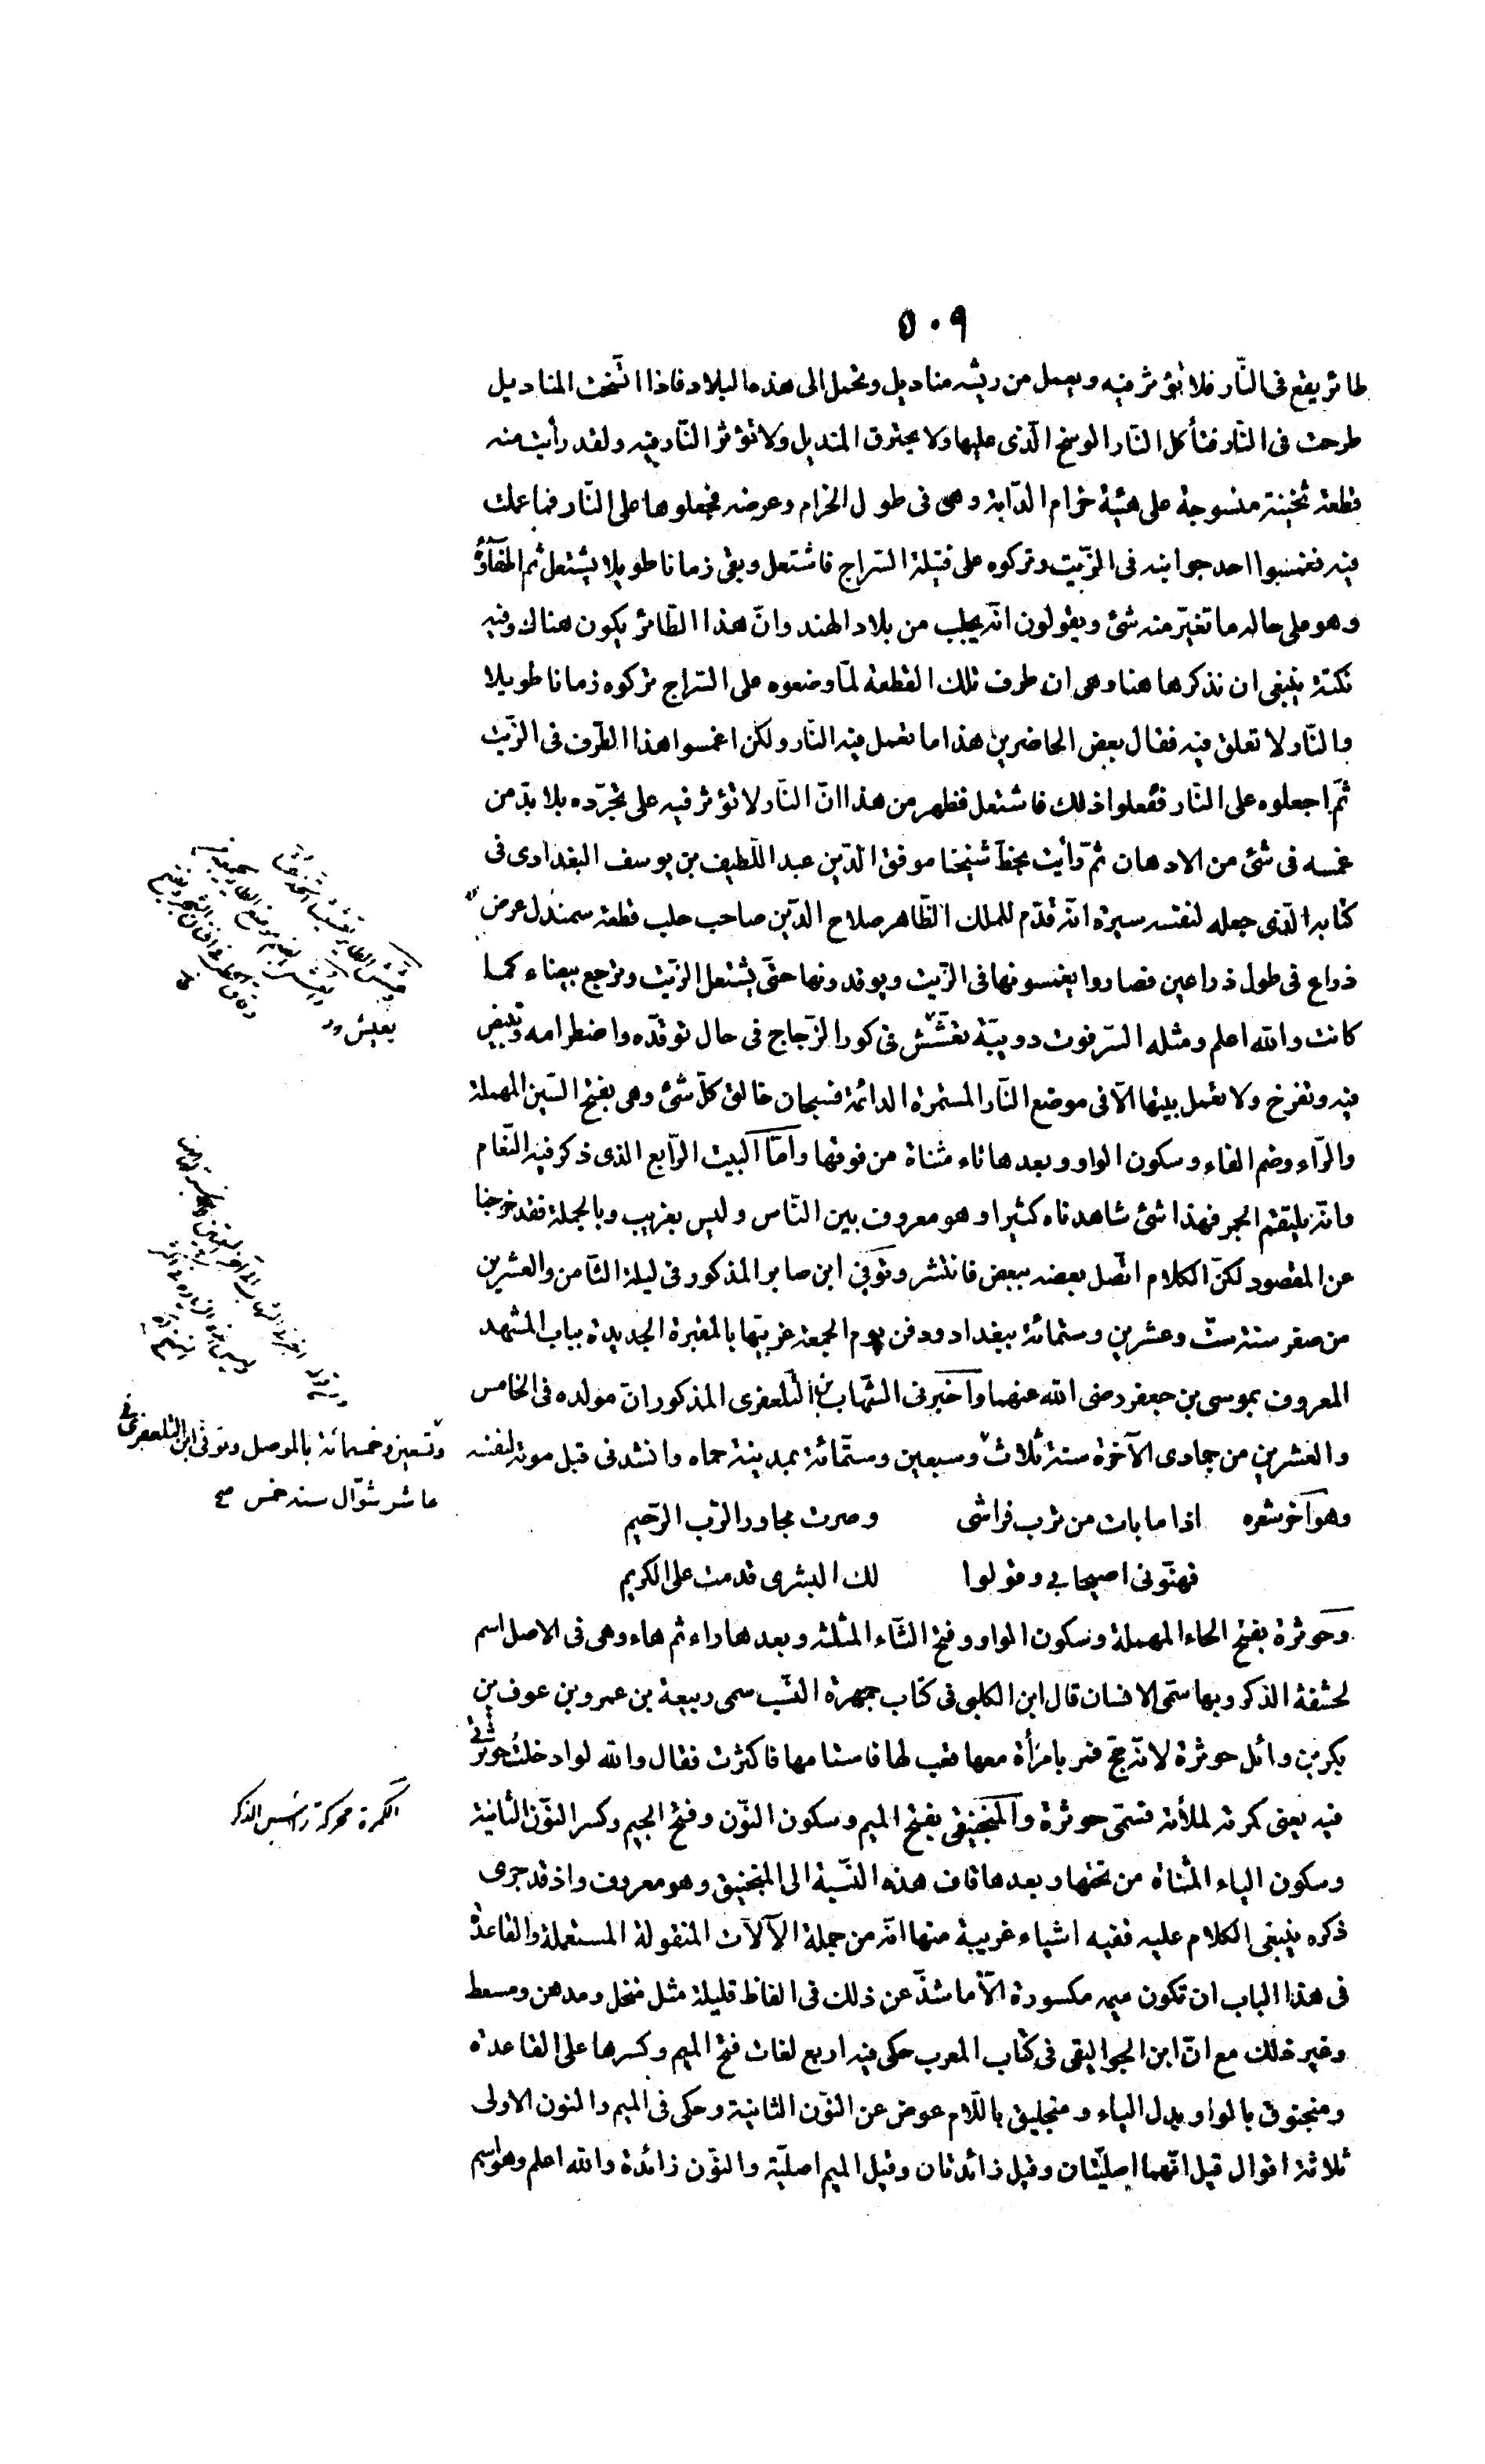 ٥٠٩
طائر يقع فى النّار فلا تؤثر فيه ويعمل من ريشه مناديل وتحمل الى هذه البلاد فاذا اتّسخت المناديل
طرحت فى النّار فتأكل النّار الوسخ الّذى عليها ولا يحترق المنديل ولا تؤثر النّار فيه ولقد رأيت منه
قطعة ثخينة منسوجة على هيئة حزام الدّابة وهى فى طول الحزام وعرضه فجعلوها على النّار فما عملت
فيه فغمسوا احد جوانبه فى الزّيت وتركوه على فتيلة السّراج فاشتعل وبقى زمانا طويلا يشتعل ثم اطفأؤه
وهو على حاله ما تغيّر منه شئ ويقولون انّه يجلب من بلاد الهند وانّ هذا الطّائر يكون هناك وفيه
نكتة ينبغى ان نذكرها هنا وهى ان طرف تلك القطعة لمّا وضعوه على السّراج تركوه زمانا طويلا
والنّار لا تعلق فيه فقال بعض الحاضرين هذا ما تعمل فيه النّار ولكن اغمسوا هذا الطّرف فى الزّيت
ثمّ اجعلوه على النّار ففعلوا ذلك فاشتعل فظهر من هذا انّ النّار لا تؤثر فيه على تجرّده بلا بدّ من
غمسه فى شئ من الادهان ثمّ رأيت بخطّ شيخنا موفق الدّين عبد اللّطيف بن يوسف البغدادى فى
كتابه الّذى جعله لنفسه سيرة انّه قدّم للملك الظّاهر صلاح الدّين صاحب حلب قطعة سمندل عرض
ذراع فى طول ذراعين فصاروا يغمسونها فى الزّيت ويوقدونها حتّى يشتعل الزّيت وترجع بيضاء كما
كانت والله اعلم ومثله السّرفوت دويبّة تعشّش فى كور الزّجاج فى حال توقّده واضطرامه وتبيض
فيه وتفرخ ولا تعمل بيتها الاّ فى موضع النّار المستمرة الدائمة فسبحان خالق كلّ شئ وهى بفتح السّين المهملة
والرّاء وضم الفاء وسكون الواو وبعدها تاء مثناة من فوقها وامّا البيت الرّابع الذى ذكر فيه النّعام
وانّه يلتقم الجمر فهذا شئ شاهدناه كثيرا وهو معروف بين النّاس وليس بغريب وبالجملة فقد خرجنا
عن المقصود لكنّ الكلام اتّصل بعضه ببعض فانتشر وتوفى ابن صابر المذكور فى ليلة الثّامن والعشرين
من صفر سنة ستّ وعشرين وستمائة ببغداد ودفن يوم الجمعة غربيّها بالمقبرة الجديدة بباب المشهد
المعروف بموسى بن جعفر رضى الله عنهما واخبرنى الشّهاب بن التّلعفرى المذكور انّ مولده فى الخامس
والعشرين من جمادى الآخرة سنة ثلاث وسبعين وستّمائة بمدينة حماه وانشدنى قبل موته لنفسه
وتسعين وخمسمائة بالموصل وتوفى ابن التلعفرى فى
عاشر شوّال سنه خمس صح
وهو آخر شعره اذا ما بات من ترب فراشى وصرت مجاور الرّب الرّحيم
فهنّونى اصيحابى وقولوا لك البشرى قدمت على الكريم
وحوثرة بفتح الحاء المهملة وسكون الواو وفتح الثّاء المثلثة وبعدها راء ثم هاء وهى فى الاصل اسم
لحشفة الذكر وبها سمّى الانسان قال ابن الكلبى فى كتاب جمهرة النّسب سمى ربيعة بن عمرو بن عوف بن
بكر بن وائل حوثرة لانّه حجّ فمر بامرأة معها قعب لها فاستامها فاكثرت فقال والله لو ادخلت حوثرتى
فيه يعنى كمرته لملأته فسمّى حوثرة والمنجنيقى بفتح الميم وسكون النّون وفتح الجيم وكسر النّون الثانية
الكمرة محركة رأس الذكر
وسكون الياء المثناة من تحتها وبعدها قاف هذه النّسبة الى المنجنيق وهو معروف واذ قد جرى
ذكره ينبغى الكلام عليه ففيه اشياء غريبة منها انّه من جملة الآلات المنقولة المستعملة والقاعدة
فى هذا الباب ان تكون ميمه مكسورة الاّ ما شذّ عن ذلك فى الفاظ قليلة مثل منخل ومدهن ومسعط
وغير ذلك مع انّ ابن الجواليقى فى كتاب المعرب حكى فيه اربع لغات فتح الميم وكسرها على القاعدة
ومنجنوق بالواو بدل الياء ومنجليق باللّام عوض عن النّون الثانية وحكى فى الميم والنون الاولى
ثلاثة اقوال قيل انّهما اصليّتان وقيل زائدتان وقيل الميم اصليّة والنّون زائدة والله اعلم وهو اسم